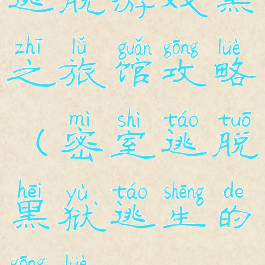 逃脱游戏黑
zhī lǚ guǎn gōng lüè
之旅馆攻略
mì shì táo tuō
（密室逃脱
hēi yù táo shēng de
黑狱逃生的
gōng lüè